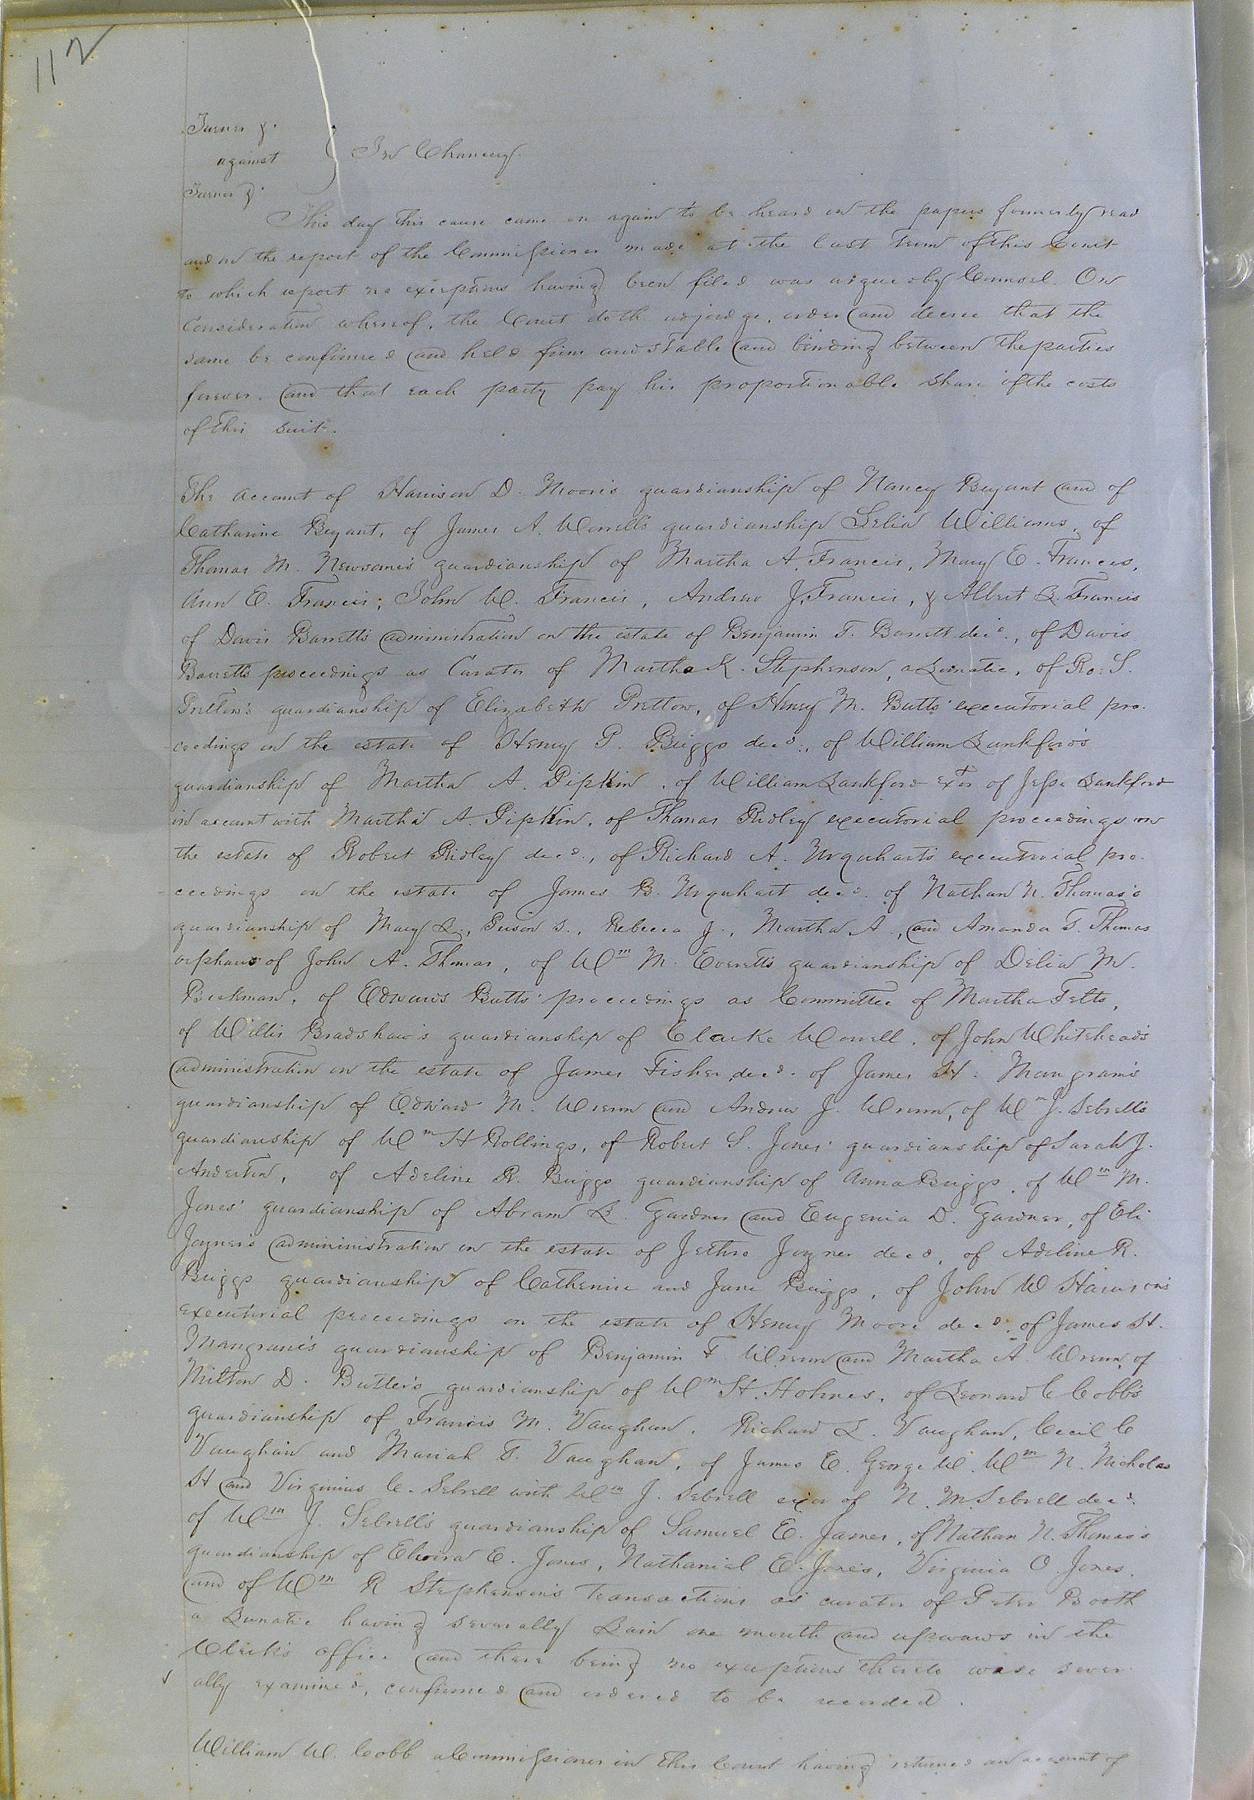 112
Turner &c
against
In Chancery.
Turner &c
This day this cause came on again to be heard on the papers formerly read
and on the report of the Commissioner made at the last term of this Court
to which report no exceptions having been filed was argued by Counsel. On
Consideration whereof, the Court doth adjudge, order and decree that the
same be confirmed and held firm and stable and binding between the parties
forever. and that each party pay his proportionable share of the costs
of this suit.
The account of Harrison D. Moore's guardianship of Nancy Bryant and of
Catharine Bryant, of James A. Worrell's guardianship Delia Williams, of
Thomas M. Newsome's guardianship of Martha A. Francis, Mary E. Frances,
Ann E. Francis; John W. Francis, Andrew J. Francis, & Albert L. Francis
of Davis Barrett's administration on the estate of Benjamin T. Barrett dec'd., of Davis
Barrett's proceedings as Curator of Martha K. Stephenson, a Lunatic, of Ro: S.
Pretlow's guardianship of Elizabeth Pretlow, of Henry M. Butts' executorial pro-
ceedings on the estate of Henry P. Briggs dec'd., of William Lankford's
guardianship of Martha A. Pipkin, of William Lankford Exor of Jesse Lankford
in account with Martha A. Pipkin, of Thomas Ridley executorial proceedings on
the estate of Robert Ridley dec'd., of Richard A. Urquhart's executorial pro-
ceedings on the estate of James B. Urquhart dec'd. of Nathan N. Thomas's
guardianship of Mary L., S., Rebecca J., Martha A., and Amanda T. Thomas
orphans of John A. Thomas, of Wm M. Everett's guardianship of Delia M.
Beckman, of Edwards Butts' proceedings as Committee of Martha Felts,
of Willis Bradshaw's guardianship of Clarke Worrell, of John Whitehead's
administration on the estate of James Fisher dec'd. of James H. Mangram's
guardianship of Edward M. Wrenn and Andrew J. Wrenn, of Wm J. Sebrell's
guardianship of Wm H Rollings, of Robert S. Jones' guardianship of Sarah J.
Anderton, of Adeline R. Briggs guardianship of Anna Briggs, of Wm M.
Jones' guardianship of Abram L. Gardner and Eugenia D. Gardner, of Eli
Joyner's admininistration on the estate of Jethro Joyner dec'd, of Adeline R.
Briggs guardianship of Catherine and Jane Briggs, of John W Harrison's
executorial proceedings on the estate of Henry Moore dec'd. of James H.
Mangram's guardianship of Benjamin F Wrenn and Martha A. Wrenn, of
Milton D. Butler's guardianship of Wm H. Holmes, of Leonard C Cobb's
guardianship of Francis M. Vaughan, Richard L. Vaughan, Cecil C
Vaughan and Mariah T. Vaughan, of James E. George W. Wm N. Nicholas
H and Virginius C. Sebrell with Wm J. Sebrell exor of N. M Sebrell dec'd.
of Wm J. Sebrell's guardianship of Samuel E. James, of Nathan N. Thomas's
guardianship of Elvira E. Jones, Nathanial E. Jones, Virginia O Jones,
and of Wm R Stephenson's transactions as curator of Peter Booth
a Lunatic having severally Lain one month and upwards in the
Clerk's office and there being no exceptions thereto were sever
ally examined, confirmed and ordered to be recorded.
William W. Cobb a Commissioner in this Court having returned an account of